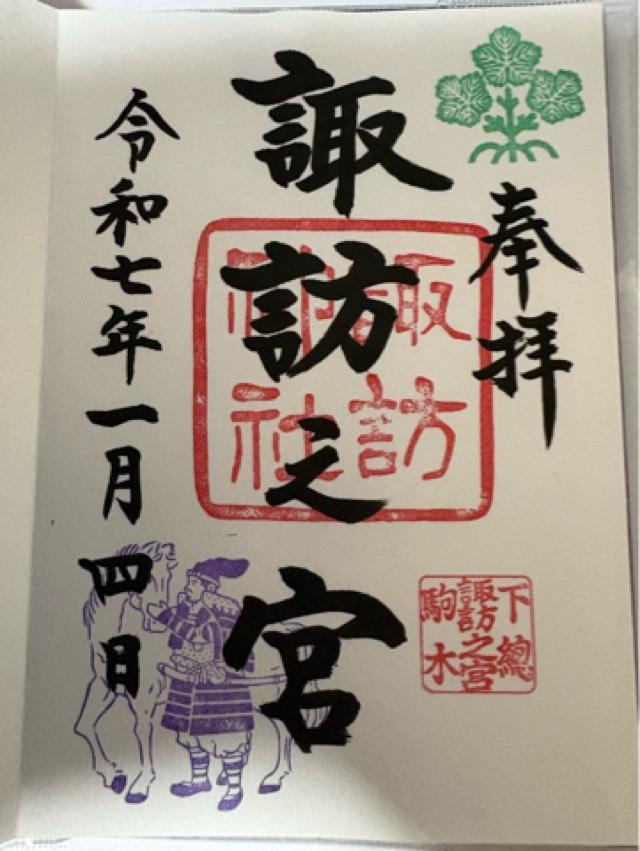 奉拝
諏訪之宮
令和七年一月四日
諏訪
神社
下總
諏訪之宮
駒木